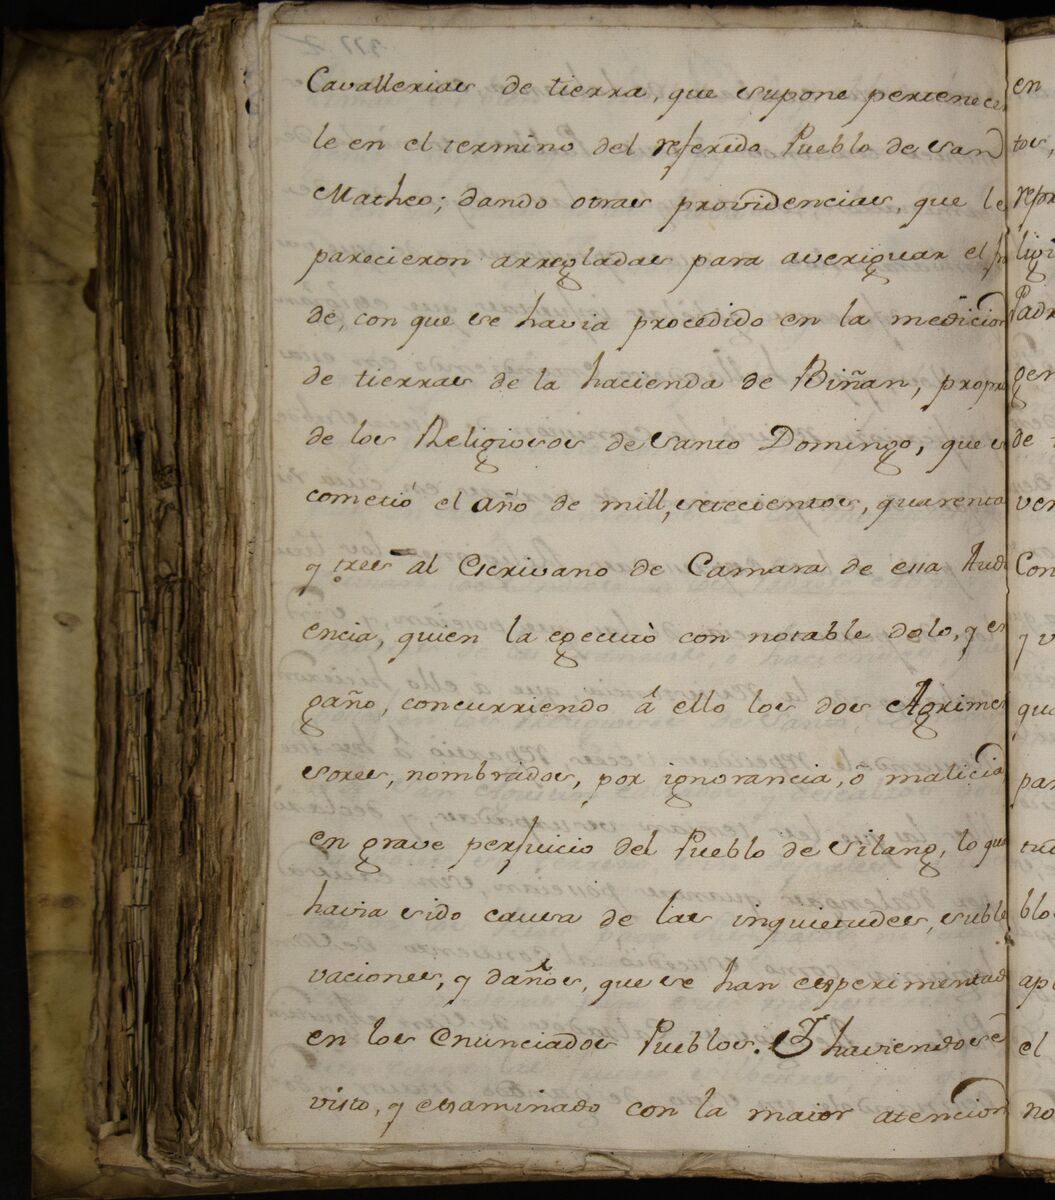 Cavallerias de tierra, que supone pertenecer
le en el termino del referido Pueblo de San
Matheo; dando otras providencias, que le
parecieron arregladas para averiguar el fra
de, con que se havia procedido en la medicion
de tierras de la hacienda de Biñan, propria
de los Religiosos de Santo Domingo, que se
cometió el año de mill, setecientos, quarenta
y tres al Escrivano de Camara de essa Audi
encia, quien la egecutò con notable dolo, y en
gaño, concurriendo á ello los dos Agrimen
sores, nombrados, por ignorancia, ô malicia
en grave perjuicio del Pueblo de Silang, lo que
havia sido causa de las inquietudes, suble
vaciones, y daños, que se han esperimentado
en los enunciados Pueblos. Y haviendose
visto, y examinado con la maior atencion
en
tos,
refor
ligi
Padr
gen
de
ver
Con
y v
qua
par
tu
blo
apl
el
no